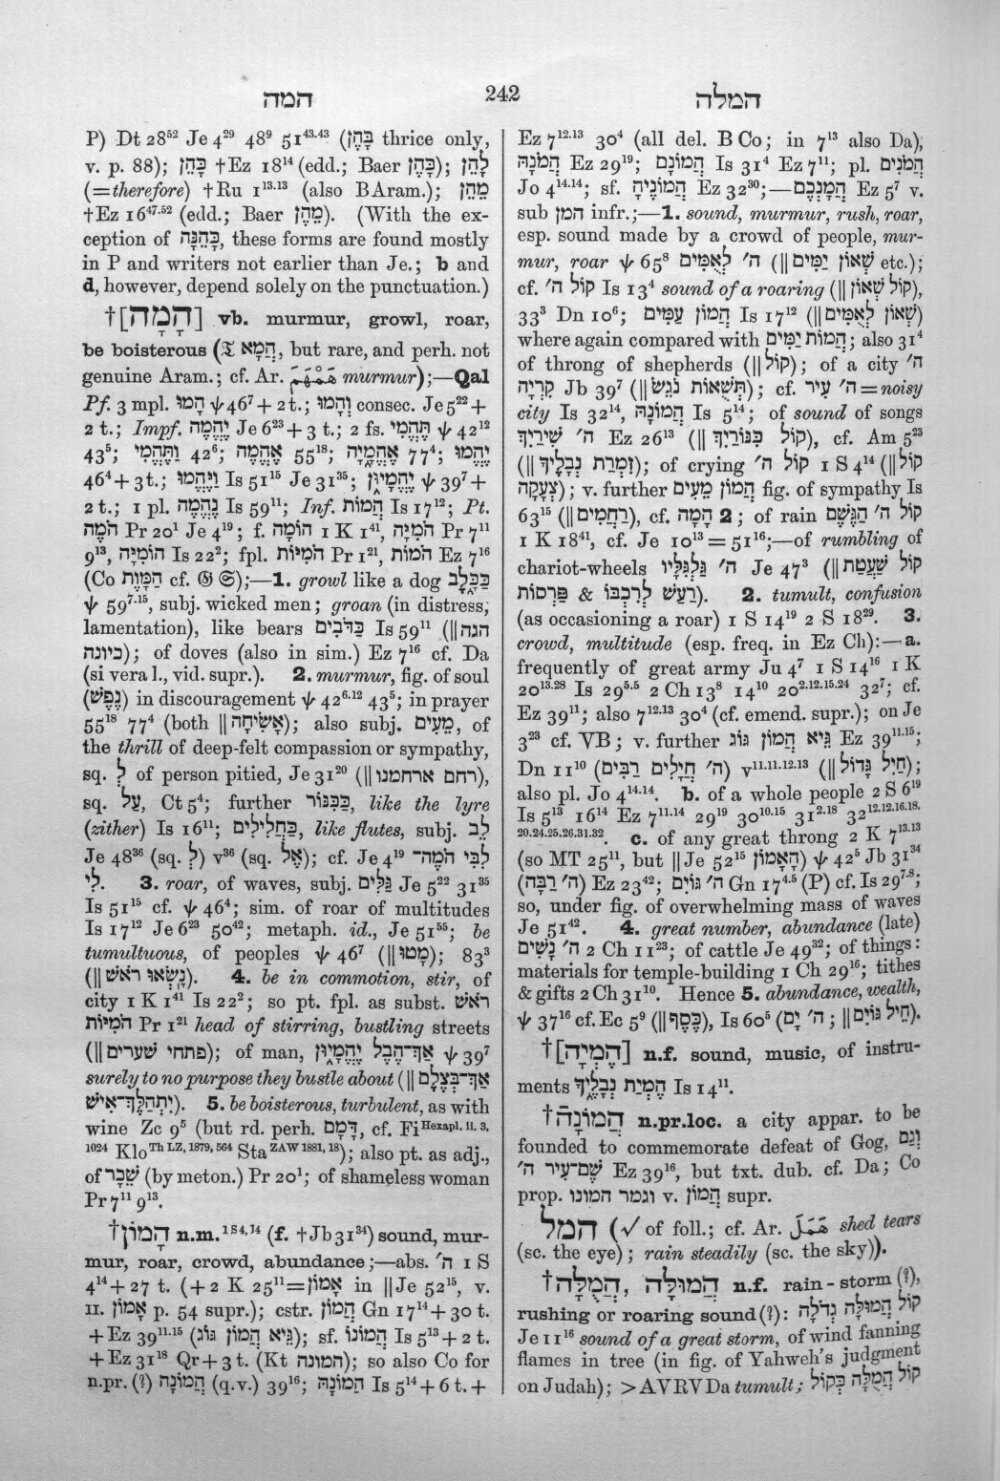 המה
242
המלה
P) Dt 28⁵² Je 4²⁹ 48⁹ 51⁴³·⁴³ (בָּהֶן thrice only,
v. p. 88); כָּהֵן †Ez 18¹⁴ (edd.; Baer כָּהֶן); לָהֵן
(=therefore) †Ru 1¹³·¹³ (also BAram.); מֵהֵן
†Ez 16⁴⁷·⁵² (edd.; Baer מֵהֶן). (With the ex-
ception of בָּהֵנָּה, these forms are found mostly
in P and writers not earlier than Je.; b and
d, however, depend solely on the punctuation.)
†[הָמָה] vb. murmur, growl, roar,
be boisterous (𝔗 הֲמָא, but rare, and perh. not
genuine Aram.; cf. Ar. هَمْهَم murmur);—Qal
Pf. 3 mpl. הָמוּ ψ 46⁷ + 2 t.; וְהָמוּ consec. Je 5²² +
2 t.; Impf. יֶהֱמֶה Je 6²³ + 3 t.; 2 fs. תֶּהֱמִי ψ 42¹²
43⁵; וַתֶּהֱמִי 42⁶; אֶהֱמֶה 55¹⁸; אֶהֱמָיָה 77⁴; יֶהֱמוּ
46⁴ + 3 t.; וַיֶּהֱמוּ Is 51¹⁵ Je 31³⁵; יֶהֱמָיוּן ψ 39⁷ +
2 t.; 1 pl. נֶהֱמֶה Is 59¹¹; Inf. הֲמוֹת Is 17¹²; Pt.
הֹמֶה Pr 20¹ Je 4¹⁹; f. הוֹמָה 1 K 1⁴¹, הֹמִיָּה Pr 7¹¹
9¹³, הוֹמִיָּה Is 22²; fpl. הֹמִיּוֹת Pr 1²¹, הֹמוֹת Ez 7¹⁶
(Co הַמָּוֶת cf. 𝔊 𝔖);—1. growl like a dog כַּכֶּלֶב
ψ 59⁷·¹⁵, subj. wicked men; groan (in distress,
lamentation), like bears כַּדֻּבִּים Is 59¹¹ (‖ הגה
כיונה); of doves (also in sim.) Ez 7¹⁶ cf. Da
(si vera l., vid. supr.). 2. murmur, fig. of soul
(נֶפֶשׁ) in discouragement ψ 42⁶·¹² 43⁵; in prayer
55¹⁸ 77⁴ (both ‖ אָשִׂיחָה); also subj. מֵעַיִם, of
the thrill of deep-felt compassion or sympathy,
sq. לְ of person pitied, Je 31²⁰ (‖ רחם ארחמנו),
sq. עַל, Ct 5⁴; further כַּכִּנּוֹר, like the lyre
(zither) Is 16¹¹; כַּחֲלִילִים, like flutes, subj. לֵב
Je 48³⁶ (sq. לְ) v³⁶ (sq. אֶל); cf. Je 4¹⁹ לִבִּי הֹמֶה־
לִי. 3. roar, of waves, subj. גַּלִּים Je 5²² 31³⁵
Is 51¹⁵ cf. ψ 46⁴; sim. of roar of multitudes
Is 17¹² Je 6²³ 50⁴²; metaph. id., Je 51⁵⁵; be
tumultuous, of peoples ψ 46⁷ (‖ מָטוּ); 83³
(‖ נָשְׂאוּ רֹאשׁ). 4. be in commotion, stir, of
city 1 K 1⁴¹ Is 22²; so pt. fpl. as subst. רֹאשׁ
הֹמִיּוֹת Pr 1²¹ head of stirring, bustling streets
(‖ פתחי שערים); of man, אַךְ־הֶבֶל יֶהֱמָיוּן ψ 39⁷
surely to no purpose they bustle about (‖ אַךְ־בְּצֶלֶם
יִתְהַלֶּךְ־אִישׁ). 5. be boisterous, turbulent, as with
wine Zc 9⁵ (but rd. perh. דָּמָם, cf. Fi Hexapl. ii. 3,
1024 Klo Th LZ, 1879, 564 Sta ZAW 1881, 18); also pt. as adj.,
of שֵׁכָר (by meton.) Pr 20¹; of shameless woman
Pr 7¹¹ 9¹³.
†הָמוֹן n.m. 1 S 4, 14 (f. †Jb 31³⁴) sound, mur-
mur, roar, crowd, abundance;—abs. ה׳ 1 S
4¹⁴ + 27 t. (+ 2 K 25¹¹ = אָמוֹן in ‖ Je 52¹⁵, v.
II. אָמוֹן p. 54 supr.); cstr. הֲמוֹן Gn 17¹⁴ + 30 t.
+ Ez 39¹¹·¹⁵ (גֵּיא הֲמוֹן גּוֹג); sf. הֲמוֹנוֹ Is 5¹³ + 2 t.
+ Ez 31¹⁸ Qr + 3 t. (Kt המונה); so also Co for
n.pr. (?) הֲמוֹנָה (q.v.) 39¹⁶; הֲמוֹנָהּ Is 5¹⁴ + 6 t. +
Ez 7¹²·¹³ 30⁴ (all del. B Co; in 7¹³ also Da),
הֲמֹנָהּ Ez 29¹⁹; הֲמוֹנָם Is 31⁴ Ez 7¹¹; pl. הֲמֹנִים
Jo 4¹⁴·¹⁴; sf. הֲמוֹנֶיהָ Ez 32³⁰;—הֲמָנְכֶם Ez 5⁷ v.
sub המן infr.;—1. sound, murmur, rush, roar,
esp. sound made by a crowd of people, mur-
mur, roar ψ 65⁸ ה׳ לְאֻמִּים (‖ שְׁאוֹן יַמִּים etc.);
cf. קוֹל ה׳ Is 13⁴ sound of a roaring (‖ קוֹל שְׁאוֹן),
33³ Dn 10⁶; הֲמוֹן עַמִּים Is 17¹² (‖ שְׁאוֹן לְאֻמִּים)
where again compared with הֲמוֹת יַמִּים; also 31⁴
of throng of shepherds (‖ קוֹל); of a city ה׳
קִרְיָה Jb 39⁷ (‖ תְּשֻׁאוֹת נֹגֵשׂ); cf. ה׳ עִיר = noisy
city Is 32¹⁴, הֲמוֹנָהּ Is 5¹⁴; of sound of songs
ה׳ שִׁירַיִךְ Ez 26¹³ (‖ קוֹל כִּנּוֹרַיִךְ), cf. Am 5²³
(‖ זִמְרַת נְבָלֶיךָ); of crying קוֹל ה׳ 1 S 4¹⁴ (‖ קוֹל
צְעָקָה); v. further הֲמוֹן מֵעַיִם fig. of sympathy Is
63¹⁵ (‖ רַחֲמִים), cf. הָמָה 2; of rain קוֹל ה׳ הַגֶּשֶׁם
1 K 18⁴¹, cf. Je 10¹³ = 51¹⁶;—of rumbling of
chariot-wheels ה׳ גַּלְגִּלָּיו Je 47³ (‖ קוֹל שַׁעֲטַת
פַּרְסוֹת & רַעַשׁ לְרִכְבּוֹ). 2. tumult, confusion
(as occasioning a roar) 1 S 14¹⁹ 2 S 18²⁹. 3.
crowd, multitude (esp. freq. in Ez Ch):—a.
frequently of great army Ju 4⁷ 1 S 14¹⁶ 1 K
20¹³·²⁸ Is 29⁵·⁵ 2 Ch 13⁸ 14¹⁰ 20²·¹²·¹⁵·²⁴ 32⁷; cf.
Ez 39¹¹; also 7¹²·¹³ 30⁴ (cf. emend. supr.); on Je
3²³ cf. VB; v. further גֵּיא הֲמוֹן גּוֹג Ez 39¹¹·¹⁵;
Dn 11¹⁰ (ה׳ חֲיָלִים רַבִּים) v¹¹·¹¹·¹²·¹³ (‖ חַיִל גָּדוֹל);
also pl. Jo 4¹⁴·¹⁴. b. of a whole people 2 S 6¹⁹
Is 5¹³ 16¹⁴ Ez 7¹¹·¹⁴ 29¹⁹ 30¹⁰·¹⁵ 31²·¹⁸ 32¹²·¹²·¹⁶·¹⁸·
²⁰·²⁴·²⁵·²⁶·³¹·³². c. of any great throng 2 K 7¹³·¹³
(so MT 25¹¹, but ‖ Je 52¹⁵ הָאָמוֹן) ψ 42⁵ Jb 31³⁴
(ה׳ רַבָּה) Ez 23⁴²; ה׳ גּוֹיִם Gn 17⁴·⁵ (P) cf. Is 29⁷·⁸;
so, under fig. of overwhelming mass of waves
Je 51⁴². 4. great number, abundance (late)
ה׳ נָשִׁים 2 Ch 11²³; of cattle Je 49³²; of things:
materials for temple-building 1 Ch 29¹⁶; tithes
& gifts 2 Ch 31¹⁰. Hence 5. abundance, wealth,
ψ 37¹⁶ cf. Ec 5⁹ (‖ כֶּסֶף), Is 60⁵ (ה׳ יָם ; ‖ חֵיל גּוֹיִם).
†[הֶמְיָה] n.f. sound, music, of instru-
ments הֶמְיַת נְבָלֶיךָ Is 14¹¹.
†הֲמוֹנָה n.pr.loc. a city appar. to be
founded to commemorate defeat of Gog, וְגַם
שֶׁם־עִיר ה׳ Ez 39¹⁶, but txt. dub. cf. Da; Co
prop. וגמר המונו v. הֲמוֹן supr.
המל (√ of foll.; cf. Ar. هَمَلَ shed tears
(sc. the eye); rain steadily (sc. the sky)).
†הֲמוּלָּה, הֲמֻלָּה n.f. rain-storm (?),
rushing or roaring sound (?): קוֹל הֲמוּלָּה גְדֹלָה
Je 11¹⁶ sound of a great storm, of wind fanning
flames in tree (in fig. of Yahweh's judgment
on Judah); > AVRVDa tumult; קוֹל הֲמֻלָּה כְּקוֹל